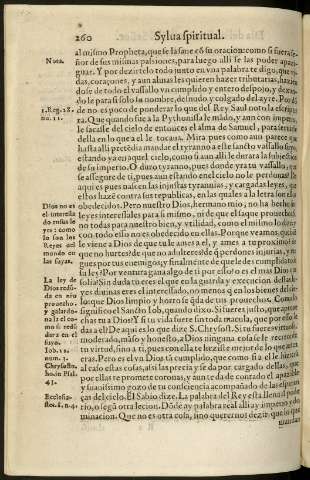 260 Sylua spiritual.
al mismo Propheta, que se la saue cõ su oracion: como si fuera se-
ñor de sus mismas passiones, para luego alli se las poder apazi-
guar. Y por deziros lo todo junto en vna palabra te digo, que vi-
das, coraçones, y aun almas les quieren hazer tributarias, hazien
dose de todo el vassallo va cumplido y entero despojo, y dexan-
dole para si solo la nombre, desnudo, y colgado del ayre. Por dõ
de no es poco de ponderar lo que del Rey Saul noto la escriptu
ra. Que quando fue a la Pythonissa le mãdo, y aun con imperio
le sacasse del cielo de entonces el alma de Samuel, para
della en lo que a el le tocaua. Mira pues como aun parece que
hasta alli pretẽdia mandar el tyranno a este sancto vassallo suyo,
estando ya en aquel cielo, como si aun alli le durara la subiectiõ
de su imperio. O duro tyranno, pues donde yra tu vassallo, que
se assegure de ti, pues aun estando en el cielo no le perdonas? He
aqui es pues nascen las injustas tyrannias, y cargadas leyes, que
estos hazẽ contra sus republicas, en las quales a la letra son ellos
obedecidos. Pero nuestro Dios, hermano mio, no ha hecho
leyes interessales para si mismo, ni de que el saque prouecho,
no todas para nuestro bien, y vtilidad, como el mismo lo dize:
con todo esso no es obedecido en ellas. Por que veamos, que
le viene a Dios de que tu le ames a el, y ames a tu proximo: de
que no hurtes? de que no adulteres? de q̃ perdones injurias, y rue
gues por tus enemigos, y finalmente de que le des cumplido to
da ley? Por ventura gana algo de ti por esso? o es el mas Dios
Sin duda tu eres el que en la guarda y execucion dessas le-
yes diuinas eres el interessado, no menos q̃ en los bienes del cie
lo, que Dios limpio y horro te q̃da de tus prouechos. Como lo
significo el Sancto Iob, quando dixo. Si tu eres justo, que aproue
chas tu a Dios? Y si tu vida fuere sin toda macula, que por esso le
das a el? De aqui es lo que dize S. Chrysost. Si tu fueres virtuoso,
moderado, máso y honesto, a Dios ninguna cosa se le recrece de
tu virtud, sino a ti, pues con ella te hazes muy mejor de lo que antes
eras. Pero es el vn Dios tã cumplido, que como si a el le hiziera
al caso estas cosas, assi las precia y se da por cargado dellas, que
por ellas te promete coronas, y aun te da de contado el apazible
y suauissimo gozo de tu consciencia acompañado de las esperan
ças del cielo. El Sabio dize. La palabra del Rey esta llena d poder
rio, o segũ otra lecion. Dõde ay palabra real alli ay imperio y do
minacion. Que no es otra cosa, sino querernos dezir, que lo que
mandan
Nota.
1. Reg. 28.
nu. 11.
Dios no es
el interessa
do en sus le
yes: como
lo son los
Reyes del
mundo en
las suyas.
La ley de
Dios redũ-
da en nřo
prouecho,
y galardo-
nala el co-
mo si redũ
dara en el
suyo.
Iob. 22.
num. 3.
Chrysost.
ho. in Psal.
41.
Ecclesia-
stes. 8. n. 4.